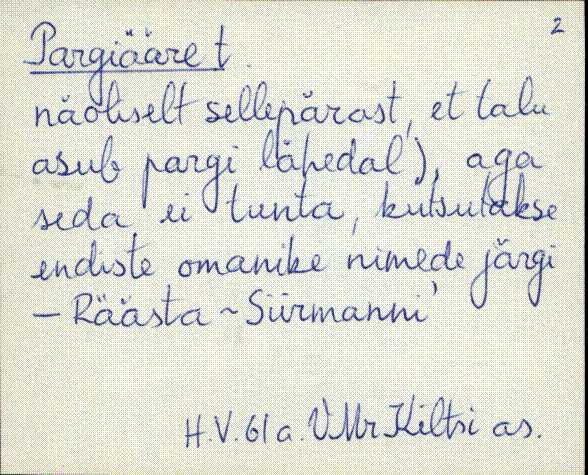 2
Pargiääre t.
näoliselt sellepärast, et talu
asub pargi lähedal), aga
seda ei tunta, kutsutakse
endiste omanike nimede järgi
— Räästa ~ Siirmanni'
H.V. 61 a. VMr Kiltsi as.